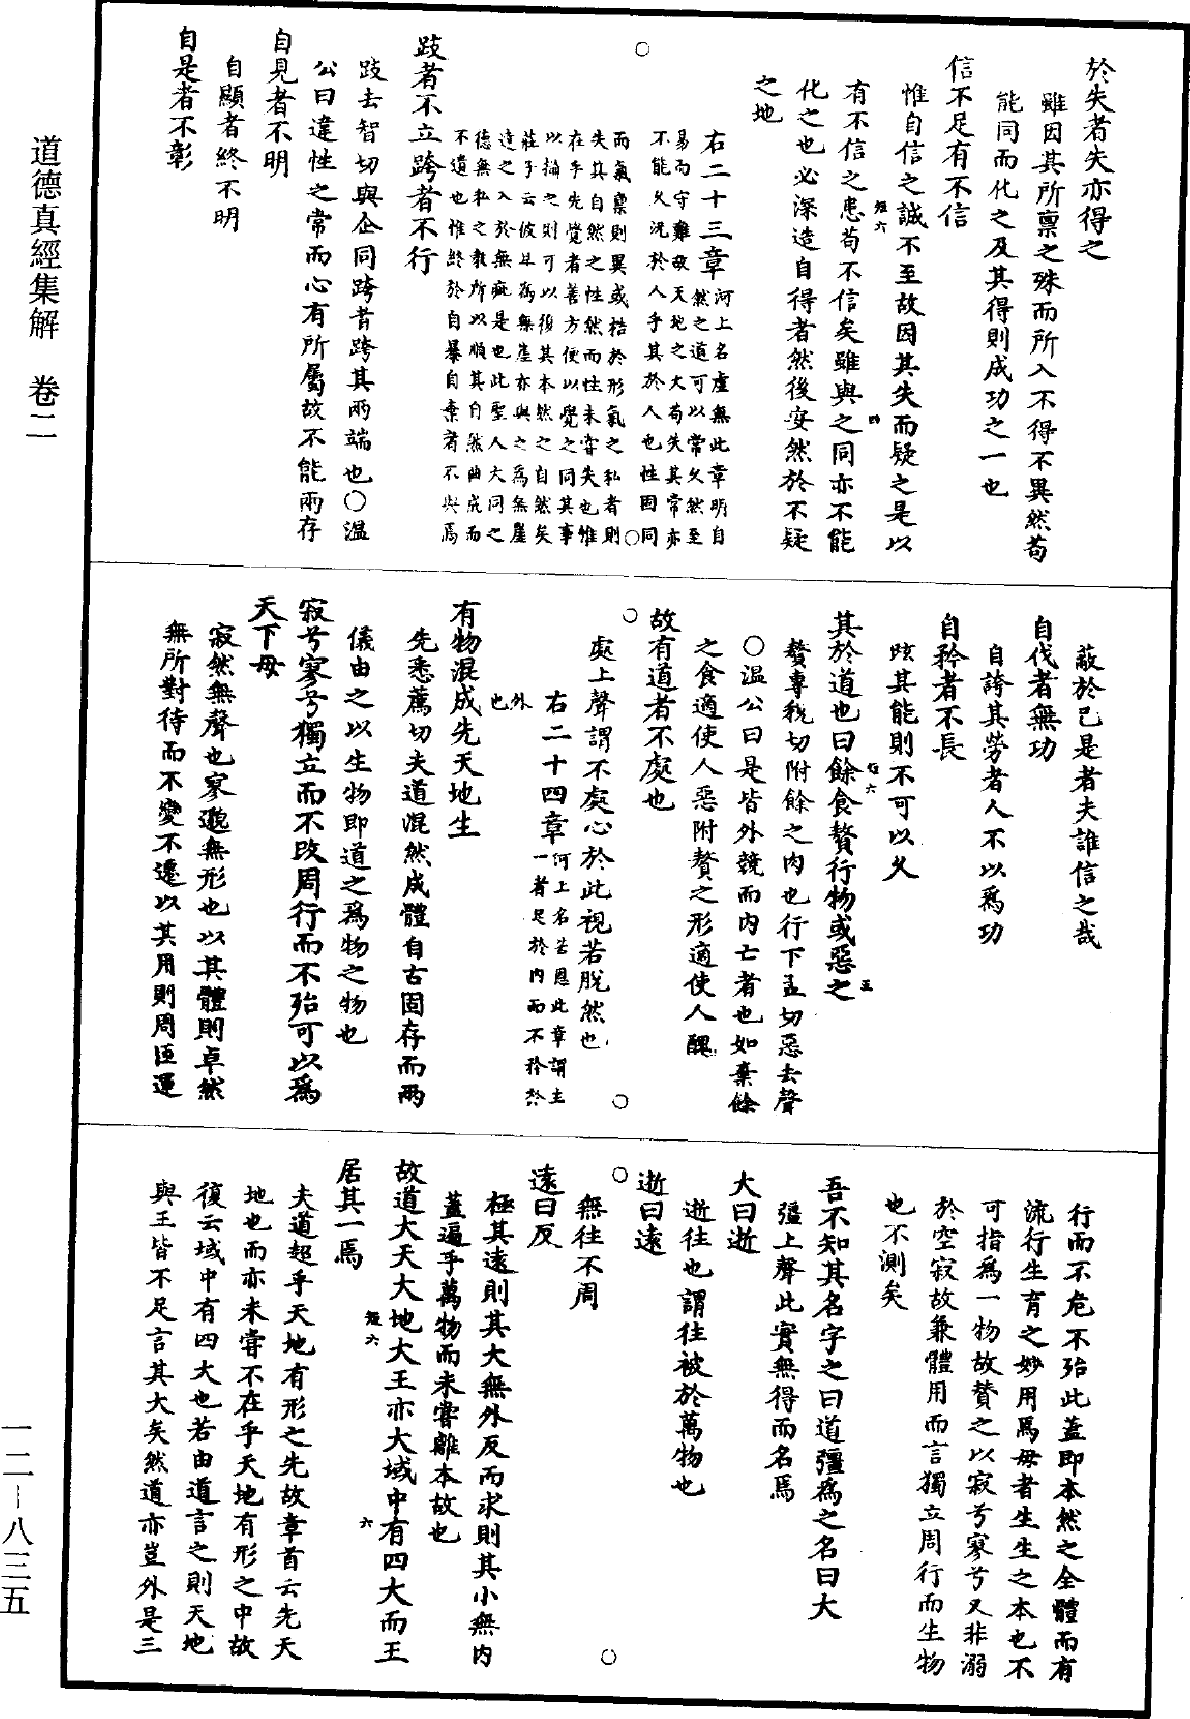 於失者失亦得之
雖因其所稟之殊而所入不得不異然苟
能同而化之及其得則成功之一也
信不足有不信
惟自信之誠不至故因其失而疑之是以
有不信之患苟不信矣雖與之同亦不能
化之也必深造自得者然後安然於不疑
之地
右二十三章
河上名虛無此章明自
然之道可以常久然至
易而守難故天地之大苟失其常亦
不能久況於人乎其於人也性固同
而氣稟則異或梏於形氣之私者則
失其自然之性然而性未嘗失也惟
在乎先覺者善方便以覺之同其事
以誘之則可以復其本然之自然矣
莊子云彼且為無崖亦與之為無崖
達之入於無疵是也此聖人大同之
德無私之教所以順其自然曲成而
不遺也惟終於自暴自棄者不與焉
跂者不立跨者不行
跂去智切與企同跨者跨其兩端也○溫
公曰違性之常而心有所屬故不能兩存
自見者不明
自顯者終不明
自是者不彰
蔽於己是者夫誰信之哉
自伐者無功
自誇其勞者人不以為功
自矜者不長
眩其能則不可以久
其於道也曰餘食贅行物或惡之
贅專稅切附餘之肉也行下孟切惡去聲
○溫公曰是皆外競而內亡者也如棄餘
之食適使人惡附贅之形適使人醜
故有道者不處也
處上聲謂不處心於此視若脫然也
右二十四章
河上名苦恩此章謂主
一者足於內而不矜於
外
也
有物混成先天地生
先悉薦切夫道混然成體自古固存而兩
儀由之以生物即道之為物之物也
寂兮寥兮獨立而不改周行而不殆可以為
天下母
寂然無聲也寥邈無形也以其體則卓然
無所對待而不變不遷以其用則周匝運
行而不危不殆此蓋即本然之全體而有
流行生育之妙用焉母者生生之本也不
可指為一物故贊之以寂兮寥兮又非溺
於空寂故兼體用而言獨立周行而生物
也不測矣
吾不知其名字之曰道彊為之名曰大
彊上聲此實無得而名焉
大曰逝
逝往也謂往被於萬物也
逝曰遠
無往不周
遠曰反
極其遠則其大無外反而求則其小無內
蓋遍乎萬物而未嘗離本故也
故道大天大地大王亦大域中有四大而王
居其一焉
夫道超乎天地有形之先故章首云先天
地也而亦未嘗不在乎天地有形之中故
復云域中有四大也若由道言之則天地
與王皆不足言其大矣然道亦豈外是三
道德真經集解　卷二
一二—八三五